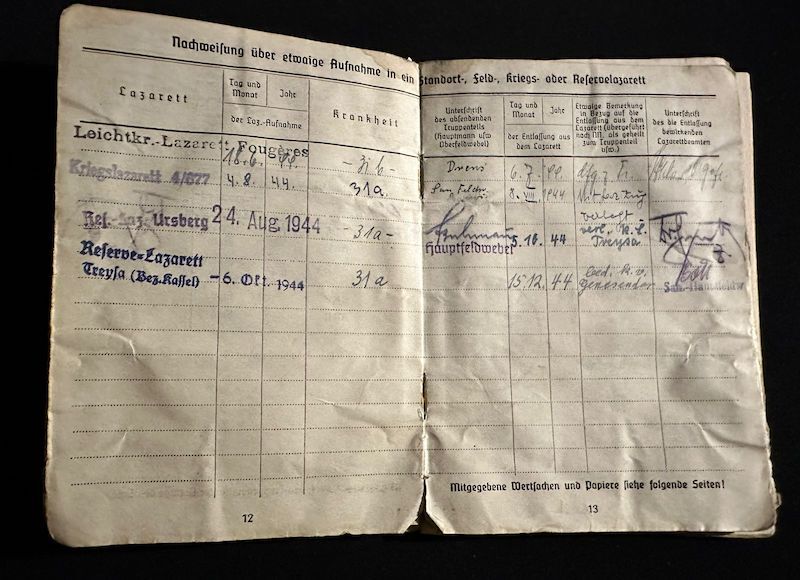 Nachweisung über etwaige Aufnahme in ein Standort-, Feld-, Kriegs- oder Reservelazarett
Lazarett
Tag und Monat
Jahr
der Laz.-Aufnahme
Krankheit
Unterschrift des absendenden Truppenteils (Hauptmann usw Oberfeldwebel)
Tag und Monat
Jahr
der Entlassung aus dem Lazarett
Etwaige Bemerkung in Bezug auf die Entlassung aus dem Lazarett (übergeführt nach NN, als geheilt zum Truppenteil usw.)
Unterschrift des die Entlassung bewirkenden Lazarettbeamten
Leichtkr.-Lazarett Fougères 18.6. 44. 6.7. 44. dfg. z. Tr.
Kriegslazarett 4/677 4.8. 44. 31a. 8. VIII. 1944 mit Laz. Zug
Res.-Laz. Ursberg 24. Aug. 1944 -31a- Hauptfeldwebel 5.10. 44 verl. Treysa
Reserve-Lazarett
Treysa (Bez. Kassel) -6. Okt. 1944 31a 15.12. 44
Mitgegebene Wertsachen und Papiere siehe folgende Seiten!
12
13